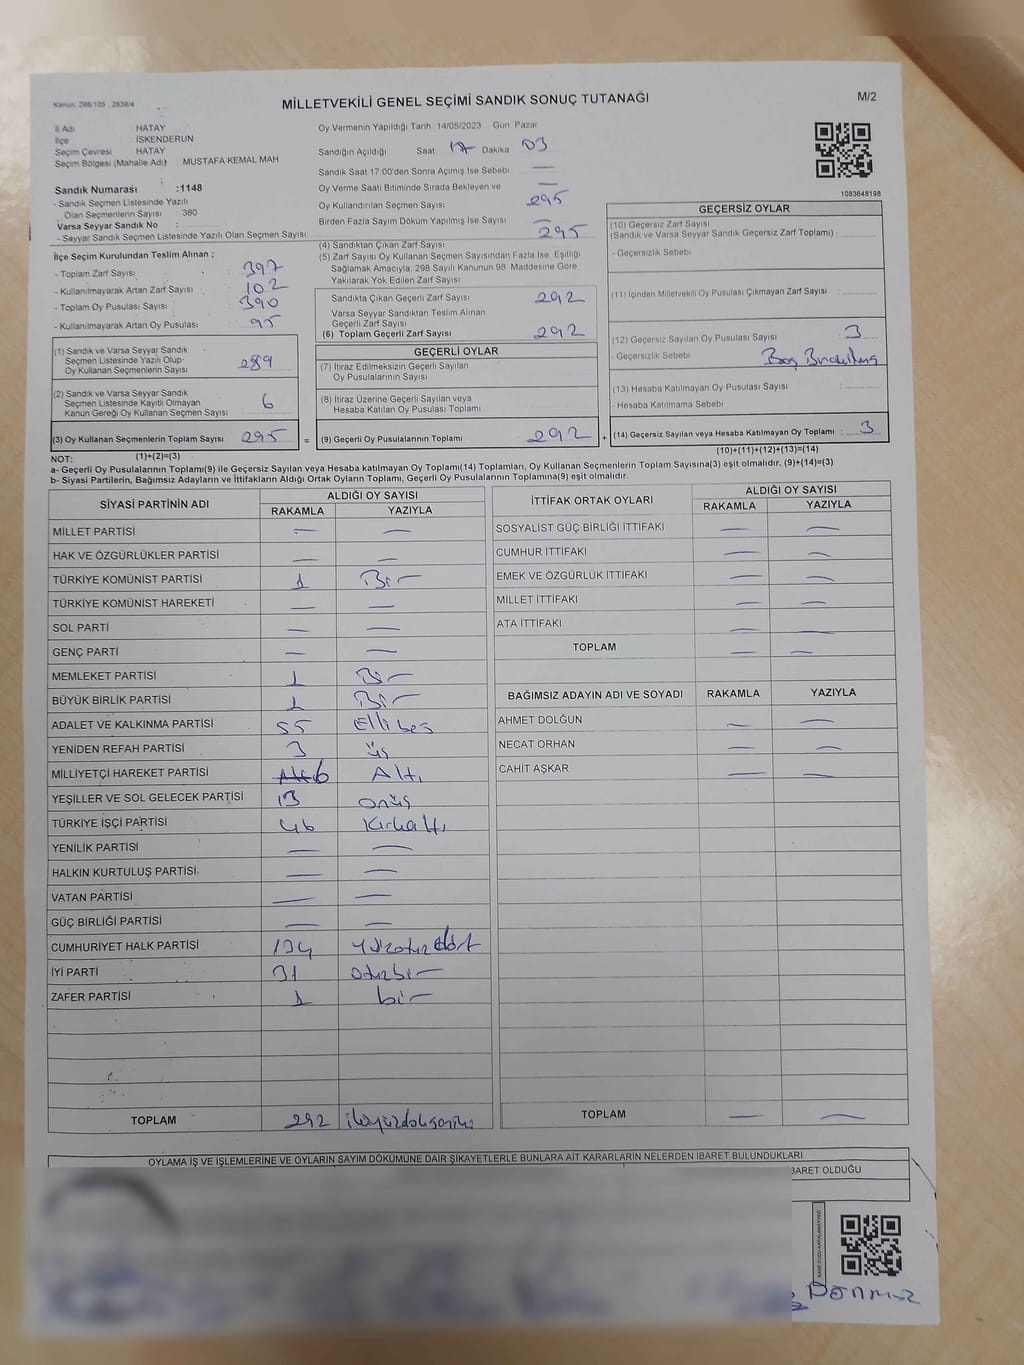 Kanun: 298/105 , 2839/4
MİLLETVEKİLİ GENEL SEÇİMİ SANDIK SONUÇ TUTANAĞI
M/2
İl Adı HATAY
İlçe İSKENDERUN
Seçim Çevresi HATAY
Seçim Bölgesi (Mahalle Adı) : MUSTAFA KEMAL MAH
Sandık Numarası :1148
- Sandık Seçmen Listesinde Yazılı
Olan Seçmenlerin Sayısı : 380
Varsa Seyyar Sandık No :
- Seyyar Sandık Seçmen Listesinde Yazılı Olan Seçmen Sayısı:
İlçe Seçim Kurulundan Teslim Alınan ;
- Toplam Zarf Sayısı 397
- Kullanılmayarak Artan Zarf Sayısı : 102
- Toplam Oy Pusulası Sayısı : 390
- Kullanılmayarak Artan Oy Pusulası : 95
(1) Sandık ve Varsa Seyyar Sandık
Seçmen Listesinde Yazılı Olup
Oy Kullanan Seçmenlerin Sayısı : 289
(2) Sandık ve Varsa Seyyar Sandık
Seçmen Listesinde Kayıtlı Olmayan
Kanun Gereği Oy Kullanan Seçmen Sayısı : 6
(3) Oy Kullanan Seçmenlerin Toplam Sayısı : 295
(1)+(2)=(3)
Oy Vermenin Yapıldığı Tarih :14/05/2023 Gün: Pazar
Sandığın Açıldığı Saat 17 Dakika 03
Sandık Saat 17:00'den Sonra Açımış İse Sebebi —
Oy Verme Saati Bitiminde Sırada Bekleyen ve —
Oy Kullandırılan Seçmen Sayısı 295
Birden Fazla Sayım Döküm Yapılmış İse Sayısı —
(4) Sandıktan Çıkan Zarf Sayısı 295
(5) Zarf Sayısı Oy Kullanan Seçmen Sayısından Fazla İse, Eşitliği
Sağlamak Amacıyla, 298 Sayılı Kanunun 98. Maddesine Göre
Yakılarak Yok Edilen Zarf Sayısı
Sandıkta Çıkan Geçerli Zarf Sayısı 292
Varsa Seyyar Sandıktan Teslim Alınan
Geçerli Zarf Sayısı
(6) Toplam Geçerli Zarf Sayısı 292
GEÇERLİ OYLAR
(7) İtiraz Edilmeksizin Geçerli Sayılan
Oy Pusulalarının Sayısı
(8) İtiraz Üzerine Geçerli Sayılan veya
Hesaba Katılan Oy Pusulası Toplamı
= (9) Geçerli Oy Pusulalarının Toplamı 292 +
1083648198
GEÇERSİZ OYLAR
(10) Geçersiz Zarf Sayısı
(Sandık ve Varsa Seyyar Sandık Geçersiz Zarf Toplamı) :
- Geçersizlik Sebebi
(11) İçinden Milletvekili Oy Pusulası Çıkmayan Zarf Sayısı :
(12) Geçersiz Sayılan Oy Pusulası Sayısı : 3
Geçersizlik Sebebi
(13) Hesaba Katılmayan Oy Pusulası Sayısı :
- Hesaba Katılmama Sebebi
(14) Geçersiz Sayılan veya Hesaba Katılmayan Oy Toplamı : 3
(10)+(11)+(12)+(13)=(14)
NOT:
a- Geçerli Oy Pusulalarının Toplamı(9) ile Geçersiz Sayılan veya Hesaba katılmayan Oy Toplamı(14) Toplamları, Oy Kullanan Seçmenlerin Toplam Sayısına(3) eşit olmalıdır. (9)+(14)=(3)
b- Siyasi Partilerin, Bağımsız Adayların ve İttifakların Aldığı Ortak Oyların Toplamı, Geçerli Oy Pusulalarının Toplamına(9) eşit olmalıdır.
SİYASİ PARTİNİN ADI ALDIĞI OY SAYISI
RAKAMLA YAZIYLA
MİLLET PARTİSİ — —
HAK VE ÖZGÜRLÜKLER PARTİSİ — —
TÜRKİYE KOMÜNİST PARTİSİ 1 Bir
TÜRKİYE KOMÜNİST HAREKETİ — —
SOL PARTİ — —
GENÇ PARTİ — —
MEMLEKET PARTİSİ 1 Bir
BÜYÜK BİRLİK PARTİSİ 1 Bir
ADALET VE KALKINMA PARTİSİ 55 Ellibeş
YENİDEN REFAH PARTİSİ 3 üç
MİLLİYETÇİ HAREKET PARTİSİ 6 Altı
YEŞİLLER VE SOL GELECEK PARTİSİ 13 onüç
TÜRKİYE İŞÇİ PARTİSİ 46 Kırkaltı
YENİLİK PARTİSİ — —
HALKIN KURTULUŞ PARTİSİ — —
VATAN PARTİSİ — —
GÜÇ BİRLİĞİ PARTİSİ — —
CUMHURİYET HALK PARTİSİ 134 Yüzotuzdört
İYİ PARTİ 31 otuzbir
ZAFER PARTİSİ 1 bir
TOPLAM 292 ikiyüzdoksaniki
İTTİFAK ORTAK OYLARI ALDIĞI OY SAYISI
RAKAMLA YAZIYLA
SOSYALİST GÜÇ BİRLİĞİ İTTİFAKI — —
CUMHUR İTTİFAKI — —
EMEK VE ÖZGÜRLÜK İTTİFAKI — —
MİLLET İTTİFAKI — —
ATA İTTİFAKI — —
TOPLAM — —
BAĞIMSIZ ADAYIN ADI VE SOYADI RAKAMLA YAZIYLA
AHMET DOLĞUN — —
NECAT ORHAN — —
CAHİT AŞKAR — —
TOPLAM — —
OYLAMA İŞ VE İŞLEMLERİNE VE OYLARIN SAYIM DÖKÜMÜNE DAİR ŞİKAYETLERLE BUNLARA AİT KARARLARIN NELERDEN İBARET BULUNDUKLARI
BARET OLDUĞU